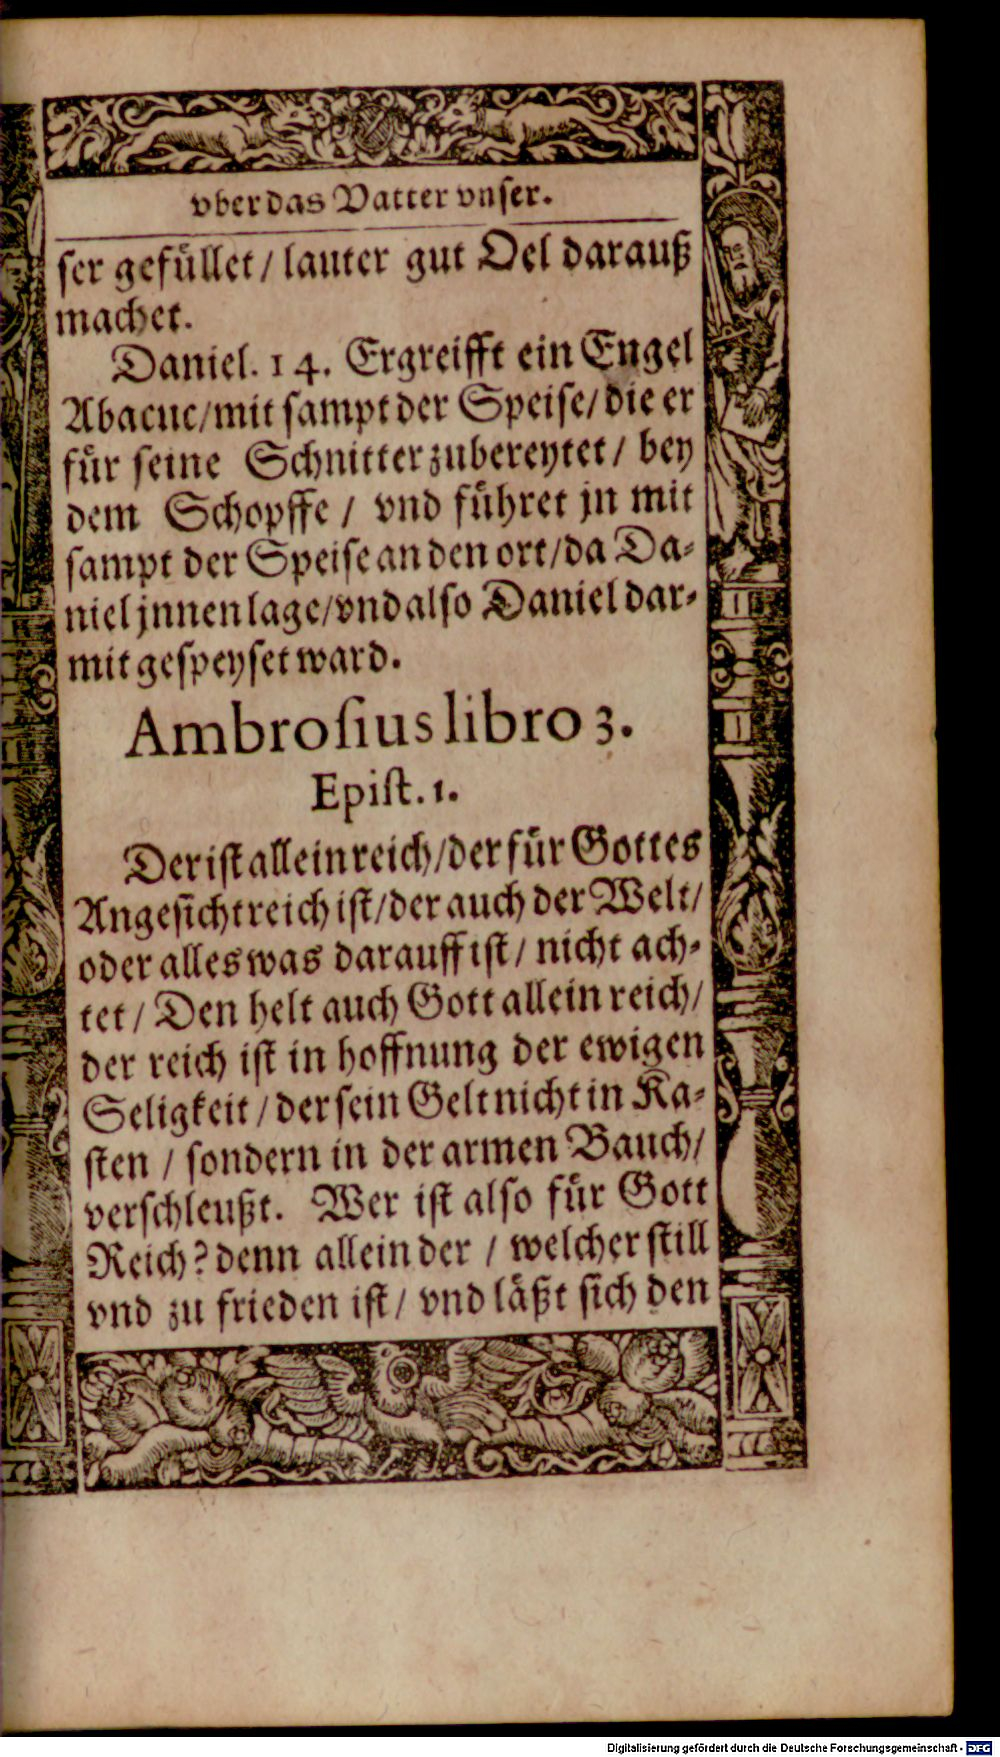 vber das Vatter vnser.
ser gefüllet / lauter gut Oel darauß
machet.
Daniel. 14. Ergreifft ein Engel
Abacuc / mit sampt der Speise / die er
für seine Schnitter zubereytet / bey
dem Schopffe / vnd führet jn mit
sampt der Speise an den ort / da Da-
niel jnnen lage / vnd also Daniel dar-
mit gespeyset ward.
Ambrosius libro 3.
Epist. 1.
Der ist allein reich / der für Gottes
Angesicht reich ist / der auch der Welt /
oder alles was darauff ist / nicht ach-
tet / Den helt auch Gott allein reich /
der reich ist in hoffnung der ewigen
Seligkeit / der sein Gelt nicht in Ka-
sten / sondern in der armen Bauch /
verschleußt. Wer ist also für Gott
Reich? denn allein der / welcher still
vnd zu frieden ist / vnd läßt sich den
Digitalisierung gefördert durch die Deutsche Forschungsgemeinschaft - DFG